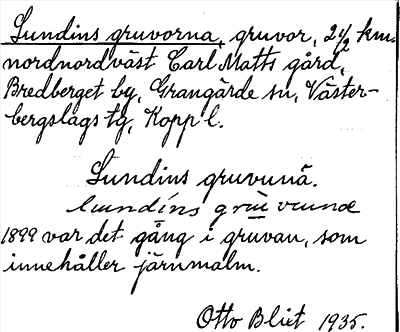 Lundins gruvorna, gruvor, 2 1/2 km.
nordnordväst Carl Matts gård,
Bredberget by, Grangärde sn, Väster-
bergslags tg, Kopp l.
Lundins gruvuna.
1899 var det gång i gruvan, som
innehåller järnmalm.
Otto Blixt 1935.